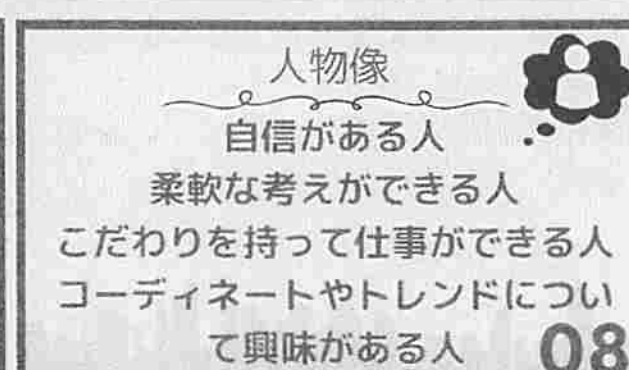 人物像
自信がある人
柔軟な考えができる人
こだわりを持って仕事ができる人
コーディネートやトレンドについ
て興味がある人
08